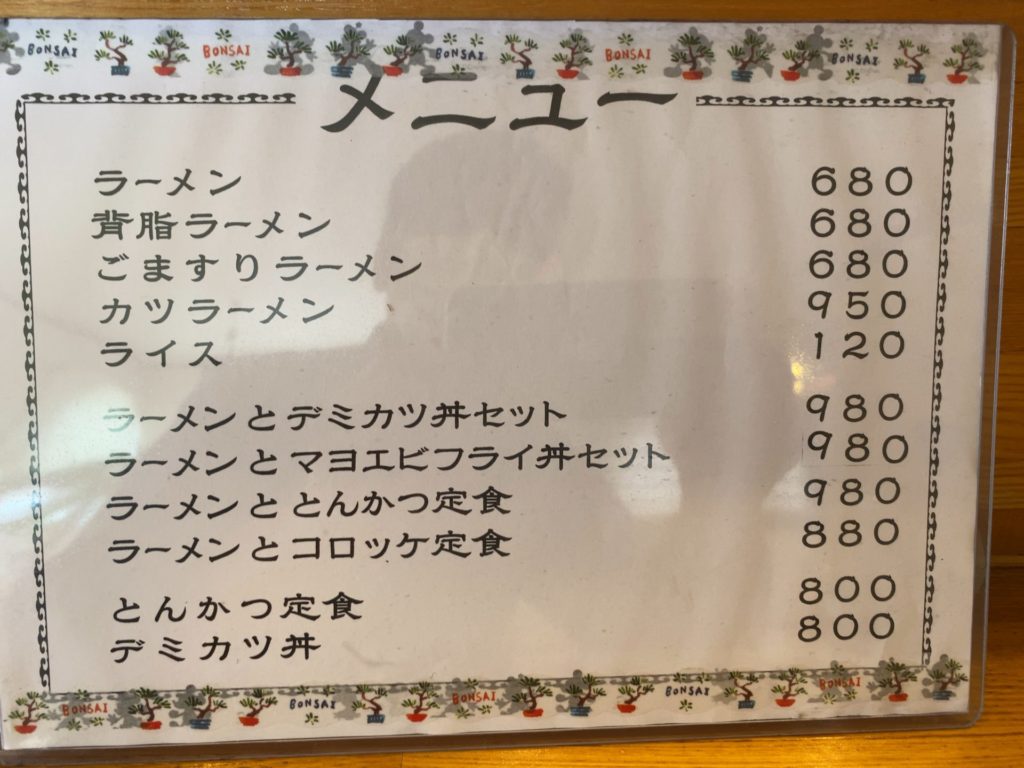 BONSAI BONSAI BONSAI BONSAI BONSAI
メニュー
ラーメン 680
背脂ラーメン 680
ごますりラーメン 680
カツラーメン 950
ライス 120
ラーメンとデミカツ丼セット 980
ラーメンとマヨエビフライ丼セット 980
ラーメンととんかつ定食 980
ラーメンとコロッケ定食 880
とんかつ定食 800
デミカツ丼 800
BONSAI BONSAI BONSAI BONSAI BONSAI